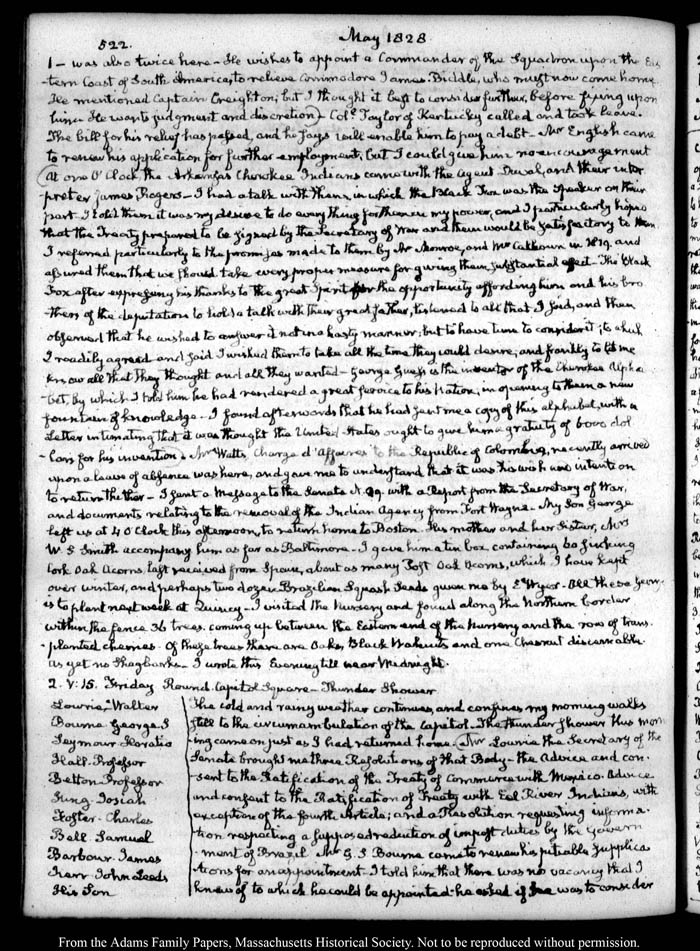 522.
May 1828
1 – was also twice here – He wishes to appoint a Commander of the Squadron upon the Eas
tern Coast of South America, to relieve Commodore James Biddle, who must now come home
He mentioned Captain Creighton; but I thought it best to consider further, before fixing upon
him. He wants judgment and discretion – Coll. Taylor of Kentucky called and took leave.
The bill for his relief has passed, and he says will enable him to pay a debt – Mr English came
to renew his application for further employment, but I could give him no encouragement
At one O'Clock the Arkansas Cherokee Indians came with the Agent Duval, and their inter
preter James Rogers – I had a talk with them, in which the Black Fox was the Speaker on their
part I told them it was my desire to do every thing for them in my power, and I particularly hoped
that the Treaty prepared to be signed by the Secretary of War and them would be satisfactory to them
I referred particularly to the promises made to them by Mr Monroe, and Mr Calhoun in 1819. and
assured them that we should take every proper measure for giving them substantial effect – The Black
Fox after expressing his thanks to the great Spirit for the opportunity affording him and his bro
thers of the deputation to hold a talk with their great father, listened to all that I said, and then
observed that he wished to answer it not in a hasty manner, but to have time to consider it; to which
I readily agreed and said I wished them to take all the time they could desire, and frankly to let me
know all that they thought and all they wanted – George Guess is the inventor of the Cherokee Alpha
-bet, by which I told him he had rendered a great service to his Nation, in opening to them a new
fountain of knowledge – I found afterwords that he had sent me a copy of this alphabet, with a
Letter intimating that it was thought the United States ought to give him a gratuity of 6000 dol
-lars for his invention. Mr Watts, Chargé d'Affaires to the Republic of Colombia, recently arrived
upon a leave of absence was here, and gave me to understand that it was his wish and intention
to return thither – I sent a Message to the Senate N. 29. with a Report from the Secretary of War,
and documents relating to the removal of the Indian Agency from Fort Wayne – My Son George
left us at 4 O'Clock this afternoon, to return home to Boston. His mother and her Sister, Mrs
W. S. Smith accompany him as far as Baltimore – I gave him a tin box containing 60
Cork Oak Acorns, last received from Spain, about as many Post Oak Acorns, which I have kept
over winter, and perhaps two dozen Brazilian Squash Seeds given me by E. Wyer – All these George
is to plant next week at Quincy – I visited the Nursery and found along the Northern border
within the fence 36 trees. coming up between the Eastern end of the Nursery and the row of trans
-planted cherries. Of these trees there are Oaks, Black Walnuts and one Chesnut discernable.
as yet no Shagbarks – I wrote this Evening till near Midnight.
2. V: 15. Friday Round Capitol Square – Thunder Shower
Lowrie, Walter
Bourne George S
Seymour Horatio
Hall. Professor
Betton Professor
Jung Josiah
Foster Charles
Bell Samuel
Barbour James
Kerr John Leeds
His Son
The cold and rainy weather continues, and confines my morning walks
still to the circumambulation of the Capitol – The thunder shower this mor
-ning came on just as I had returned home. Mr Lowrie the Secretary of the
Senate brought me three Resolutions of that Body – the Advice and con
-sent to the Ratification of the Treaty of Commerce with Mexico. Advice
and consent to the Ratification of Treaty with Eel River Indians, with
exception of the fourth Article; and a Resolution requesting informa
-tion respecting a supposed reduction of impost duties by the Govern
-ment of Brazil Mr G. S Bourne came to renew his pitiable supplica
-tions for an appointment – I told him that there was no vacancy that I
knew of to which he could be appointed – he asked if I was to consider
From the Adams Family Papers, Massachusetts Historical Society. Not to be reproduced without permission.